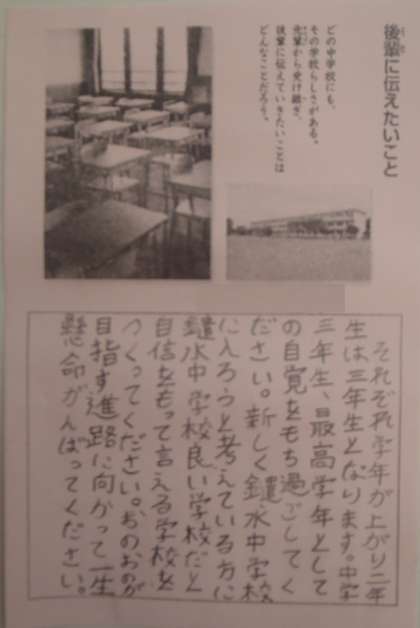 後輩に伝えたいこと
どの中学校にも、
その学校らしさがある。
先輩から受け継ぎ、
後輩に伝えていきたいことは
どんなことだろう。
それぞれ学年が上がり二年
生は三年生となります。中学
三年生、最高学年として
の自覚をもち過ごしてく
ださい。新しく鑓水中学校
に入ろうと考えている方に
鑓水中学校良い学校だと
自信をもって言える学校を
つくってください。おのおのが
目指す進路に向かって一生
懸命がんばってください。